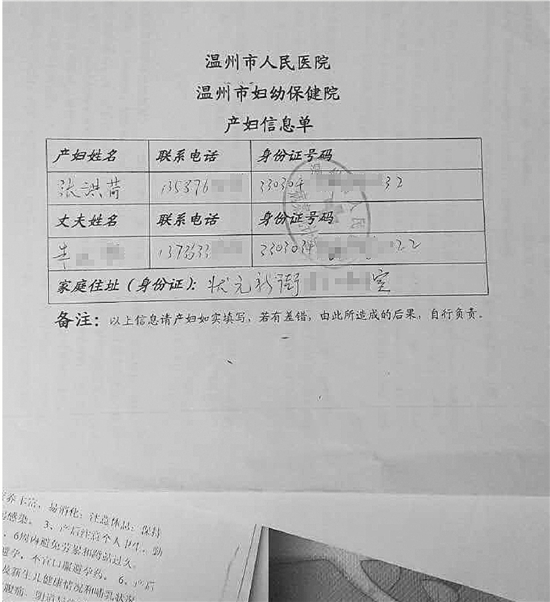 温州市人民医院
温州市妇幼保健院
产妇信息单
产妇姓名 联系电话 身份证号码
张洪苗 135876 330304 32
丈夫姓名 联系电话 身份证号码
137 330304 22
家庭住址（身份证）：状元新街 室
备注：以上信息请产妇如实填写，若有差错，由此所造成的后果，自行负责。
易消化；注意休息；保持
感染。 3、产后注意个人卫生，勤
6周内避免劳累和蹲站过久。
避孕，不宜口服避孕药。 6、产后
及新生儿健康情况和哺乳状况